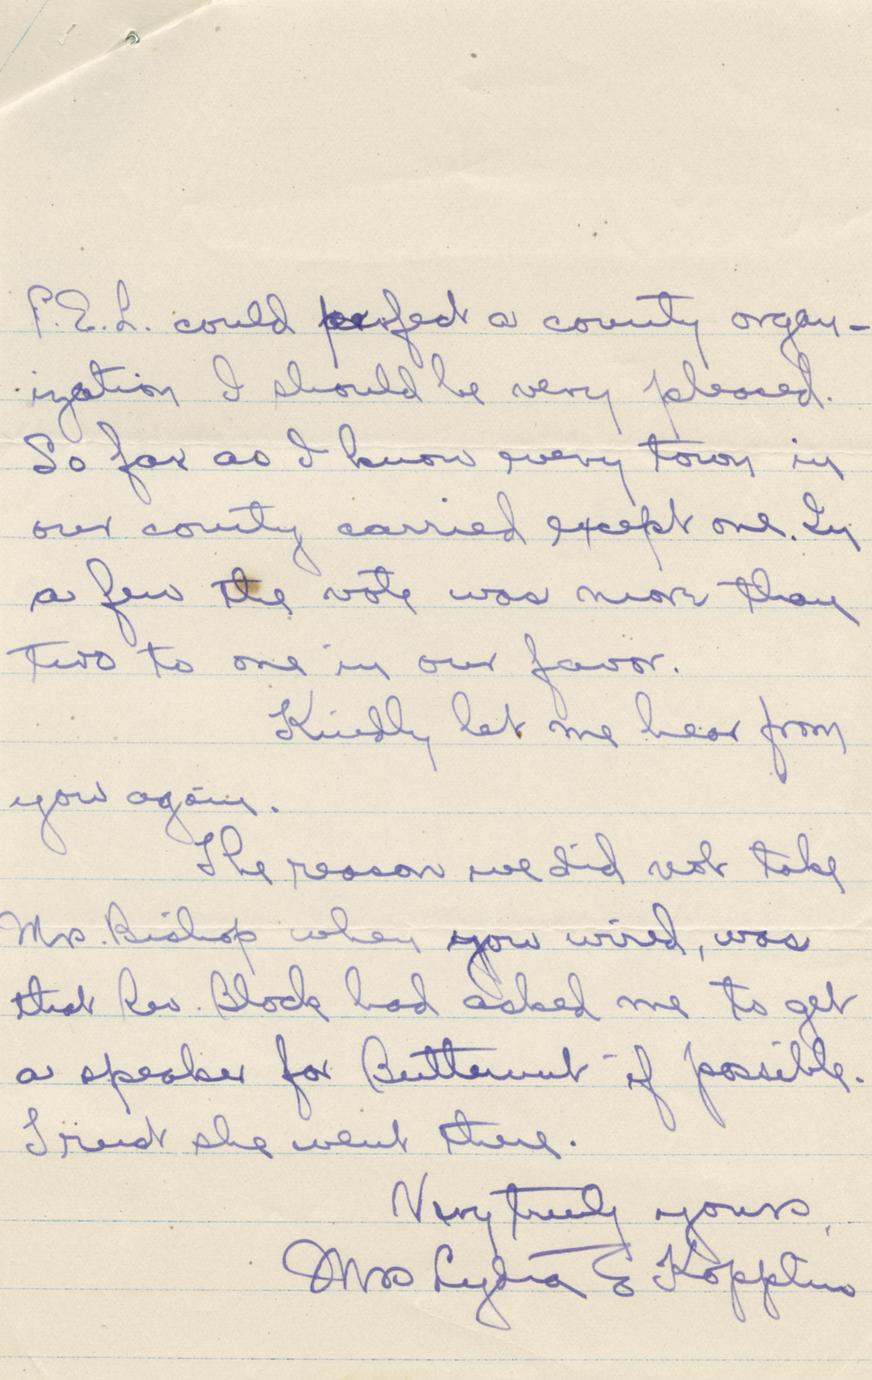 P.E.L. could perfect a county organ-
ization I should be very pleased.
So far as I know every town in
our county carried except one. In
a few the vote was more than
two to one in our favor.
Kindly let me hear from
you again.
The reason we did not take
Mrs. Bishop when you wired, was
that Rev. Block had asked me to get
a speaker for Butternut - if possible.
Trust she went there.
Very truly yours,
Mrs Lydia E Kopplin